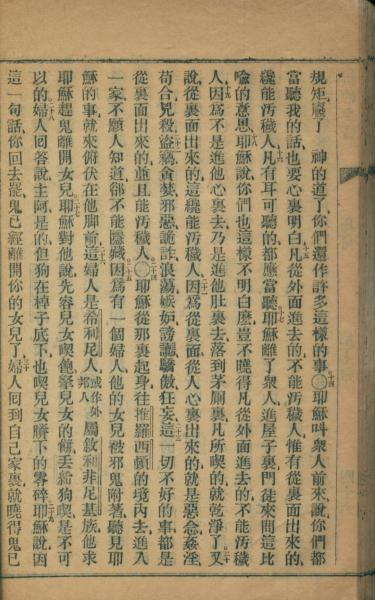 規矩廢了　神的道了你們還作許多這樣的事〇十四耶穌叫衆人前來說你們都
當聽我的話也要心裏明白十五凡從外面進去的不能汚穢人惟有從裏面出來的
纔能汚穢人十六凡有耳可聽的都應當聽十七耶穌離了衆人進屋子裏門徒來問這比
喩的意思十八耶穌說你們也這樣不明白麽豈不曉得凡從外面進去的不能汚穢
人十九因爲不是進他心裏去乃是進他肚裏去落到茅厠裏凡所喫的就乾淨了二十又
說從裏面出來的這纔能汚穢人二十一因爲從裏面從人心裏出來的就是惡念姦淫
苟合兇殺二十二盜竊貪婪邪惡詭詐浪蕩嫉妒謗讟驕傲狂妄二十三這一切不好的事都是
從裏面出來的並且能汚穢人〇二十四耶穌從那裏起身往推羅西頓的境內去進入
一家不願人知道卻不能隱藏二十五因爲有一個婦人他的女兒被邪鬼附著聽見耶
穌的事就來俯伏在他脚前二十六這婦人是希利尼人或作外邦人屬叙利非尼基族他求
耶穌趕鬼離開女兒二十七耶穌對他說先容兒女喫飽拏兒女的餅丟給狗喫是不可
以的二十八婦人回答說主阿是的但狗在棹子底下也喫兒女賸下的零碎二十九耶穌說因
這一句話你回去罷鬼已經離開你的女兒了三十婦人回到自己家裏就曉得鬼已